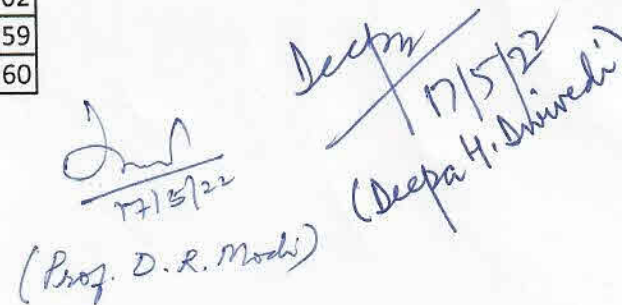 59
60
Deepa
17/5/22
(Deepa H. Dwivedi)
17/5/22
(Prof. D. R. Modi)